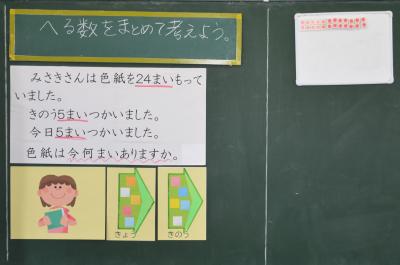 へる数をまとめて考えよう。
みさきさんは色紙を24まいもって
いました。
きのう5まいつかいました。
今日5まいつかいました。
色紙は今何まいありますか。
きょう
きのう